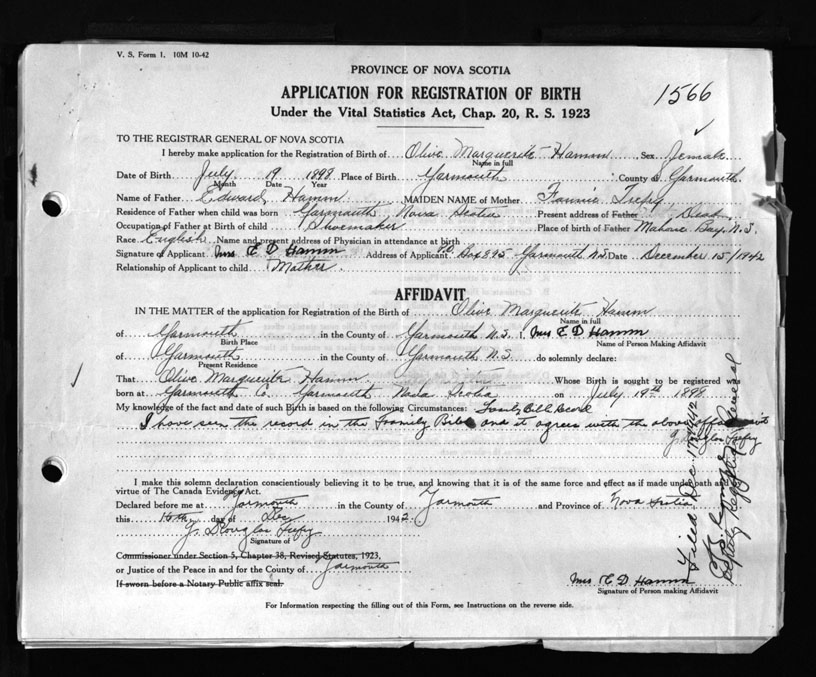 V. S. Form 1. 10M 10-42
PROVINCE OF NOVA SCOTIA
APPLICATION FOR REGISTRATION OF BIRTH
1566
Under the Vital Statistics Act, Chap. 20, R. S. 1923
TO THE REGISTRAR GENERAL OF NOVA SCOTIA
I hereby make application for the Registration of Birth of Olive Marguerite Hamm Sex Female
Name in full
Date of Birth July 19 1898 Place of Birth Yarmouth County of Yarmouth
Month Date Year
Name of Father Edward Hamm MAIDEN NAME of Mother Fannie Trefry
Residence of Father when child was born Yarmouth Nova Scotia Present address of Father Dead
Occupation of Father at Birth of child Shoemaker Place of birth of Father Mahone Bay N.S.
Race English Name and present address of Physician in attendance at birth
Signature of Applicant Mrs E D Hamm Address of Applicant Box 895 Yarmouth N.S. Date December 15/1942
Relationship of Applicant to child Mother
AFFIDAVIT
IN THE MATTER of the application for Registration of the Birth of Olive Marguerite Hamm
Name in full
of Yarmouth in the County of Yarmouth N.S. I, Mrs E D Hamm
Birth Place Name of Person Making Affidavit
of Yarmouth in the County of Yarmouth N.S. do solemnly declare:
Present Residence
That Olive Marguerite Hamm Whose Birth is sought to be registered was
born at Yarmouth Co. Yarmouth Nova Scotia on July 19th 1898
My knowledge of the fact and date of such Birth is based on the following Circumstances: Family Bible Record
I have seen the record in the Family Bible and it agrees with the above affidavit
J. Douglas Trefry
I make this solemn declaration conscientiously believing it to be true, and knowing that it is of the same force and effect as if made under oath and by
virtue of The Canada Evidence Act.
Declared before me at Yarmouth in the County of Yarmouth and Province of Nova Scotia
this 15th day of Dec 1942
J. Douglas Trefry
Signature of
Commissioner under Section 5, Chapter 38, Revised Statutes, 1923,
or Justice of the Peace in and for the County of Yarmouth
If sworn before a Notary Public affix seal.
Mrs E D Hamm
Signature of Person making Affidavit
For Information respecting the filling out of this Form, see Instructions on the reverse side.
Filed Dec 17 1942
Deputy Registrar General